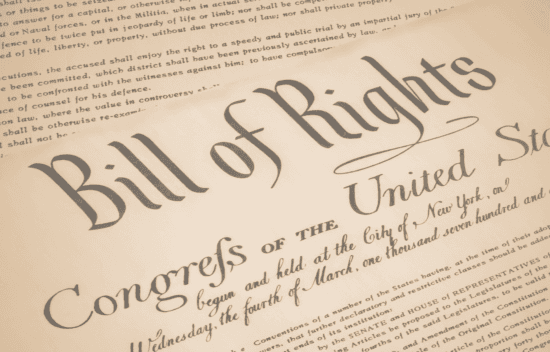 or things to be seized.
to answer for a capital, or otherwise
d or Naval forces, or in the Militia, when in actual
fence to be twice put in jeopardy of life or limb; nor shall be
ed of life, liberty, or property, without due process of law; nor shall private
cutions, the accused shall enjoy the right to a speedy and public trial by an impartial jury of the
been committed, which district shall have been previously ascertained by law,
to be confronted with the witnesses against him; to have
ce of counsel for his defence.
on law, where the value in controversy
shall be otherwise
ll not be
Bill of Rights
Congreſs OF THE United
begun and held at the City of New York, on
Wednesday, the fourth of March, one thousand seven hundred and
Conventions of a number of the States having, at the time of their
that further declaratory and restrictive clauses should be
ends of its institution:
by the SENATE and HOUSE of REPRESENTATIVES of
Articles be proposed to the Legislatures of the
of the said Legislatures, to be valid
and Amendment of the Constitution
of the Original Constitution.
Article of the Constitution